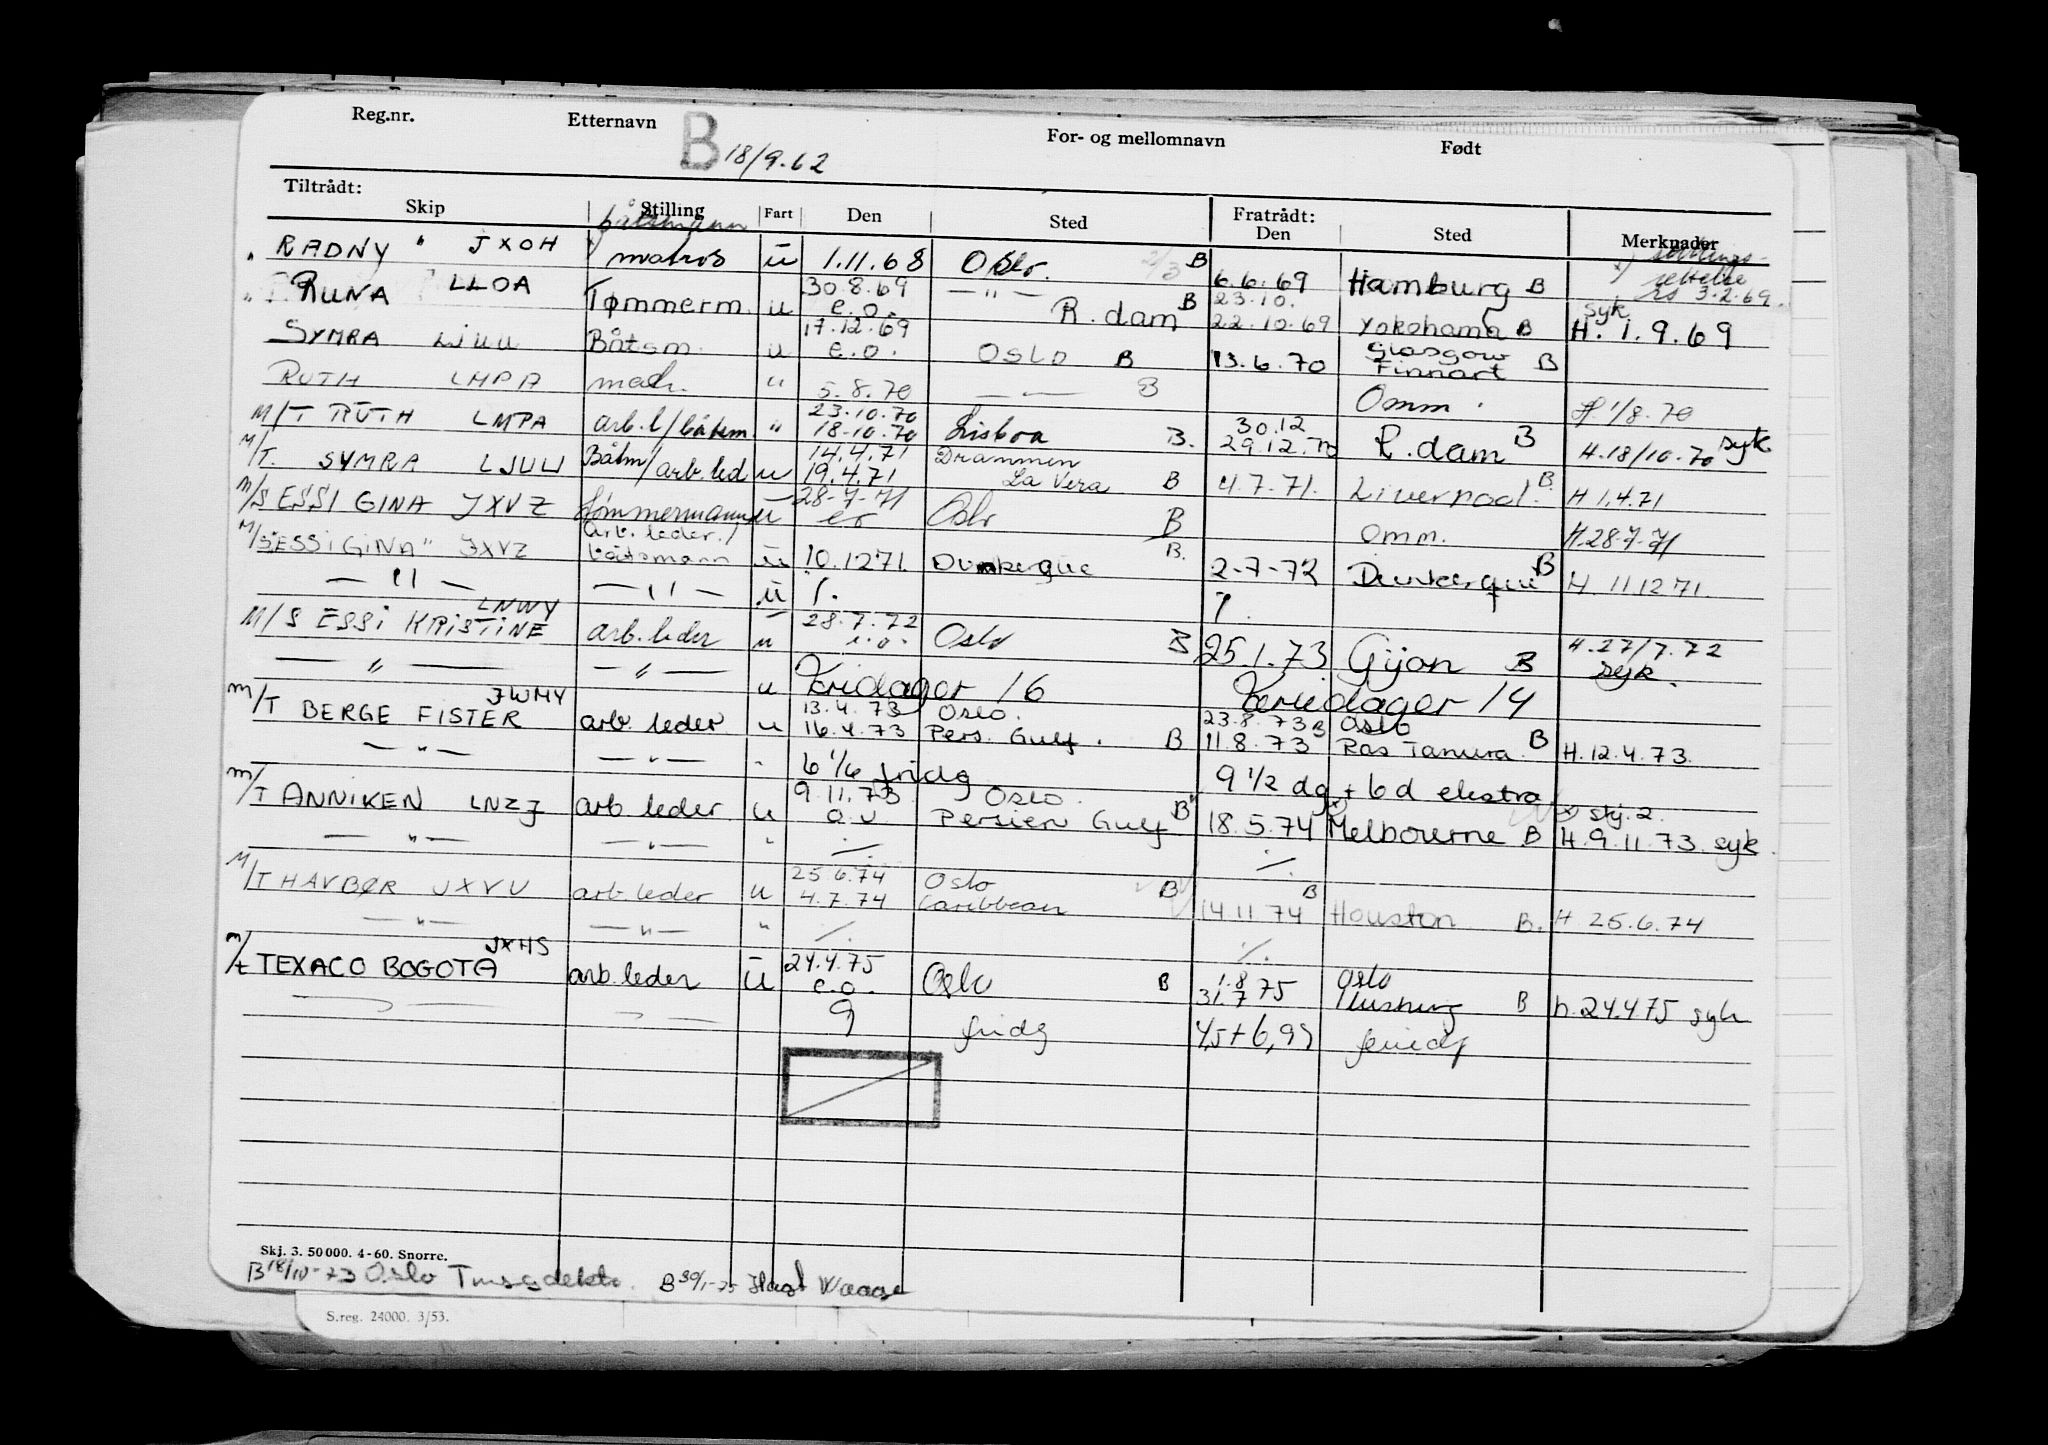 Reg.nr. Etternavn For- og mellomnavn Født
B 18/9.62
Tiltrådt: Fratrådt:
Skip Stilling Fart Den Sted Den Sted Merknader
båtsmann
" RADNY " JXOH matros ü 1.11.68 Oslo. B 6.6.69 Hamburg B rs 3.2.69.
" RUNA LLOA Tømmerm. u 30.8.69 e.o. — " — R.dam B 23.10. 22.10.69 Yokohama B syk H. 1.9.69
SYMRA LJUU Båtsm. u 17.12.69 e.o. OSLO B 13.6.70 Glasgow Finnart B
RUTH LMPA matr. " 5.8.70 — " — B Omm. H 1/8.70
M/T RUTH LMPA arb.l/båtsm. " 23.10.70 18.10.70 Lisboa B. 30.12 29.12.70 R.dam B H.18/10.70 syk
M/T. SYMRA LJUU Båtm/arb.led u 14.4.71 19.4.71 Drammen La Vera B 4.7.71. Liverpool. B. H 1.4.71
M/S ESSI GINA JXVZ Tømmermann u 28-7-71 eo Oslo B Omm. H.28-7-71
M/S "ESSI GINA" JXVZ arb.leder/båtsmann ü 10.1271. Dunkerque B. 2-7-72 Dunkerque B H 11.1271.
— " — — " — ü %. %.
M/S ESSI KRISTINE LNWY arb.leder u 28.7.72 e.o. Oslo B 25.1.73 Gijon B H.27/7.72 syk.
— " — — " — u Fridager 16 Feriedager 14
M/T BERGE FISTER JWMY arb.leder u 13.4.73 16.4.73 Oslo. Pers. Gulf. B 23.8.73 11.8.73 B Oslo Ras Tanura. B H.12.4.73.
— " — — " — " 6 1/6 fridg 9 1/2 dg + 6d ekstra
M/T ANNIKEN LNZJ arb.leder u 9.11.73 o.v Oslo. Persien Gulf B 18.5.74 Melbourne B x) skj.2. H.9.11.73. syk.
— " — — " — " %. %.
M/T HAVBØR JXVU arb.leder u 25.6.74 4.7.74 Oslo Caribbean B 14.11.74 B Houston B. H 25.6.74
— " — — " — " %. %.
M/t TEXACO BOGOTA JXHS arb.leder ü 24.4.75 e.o. Oslo B 1.8 31.7 75 Oslo B h.24.4.75 syk
— " — — " — 9 fridg 4,5+6,99 feriedg
Skj. 3. 50000. 4-60. Snorre.
B 18/10-73 Oslo B 30/1-75
S.reg. 24000. 3/53.